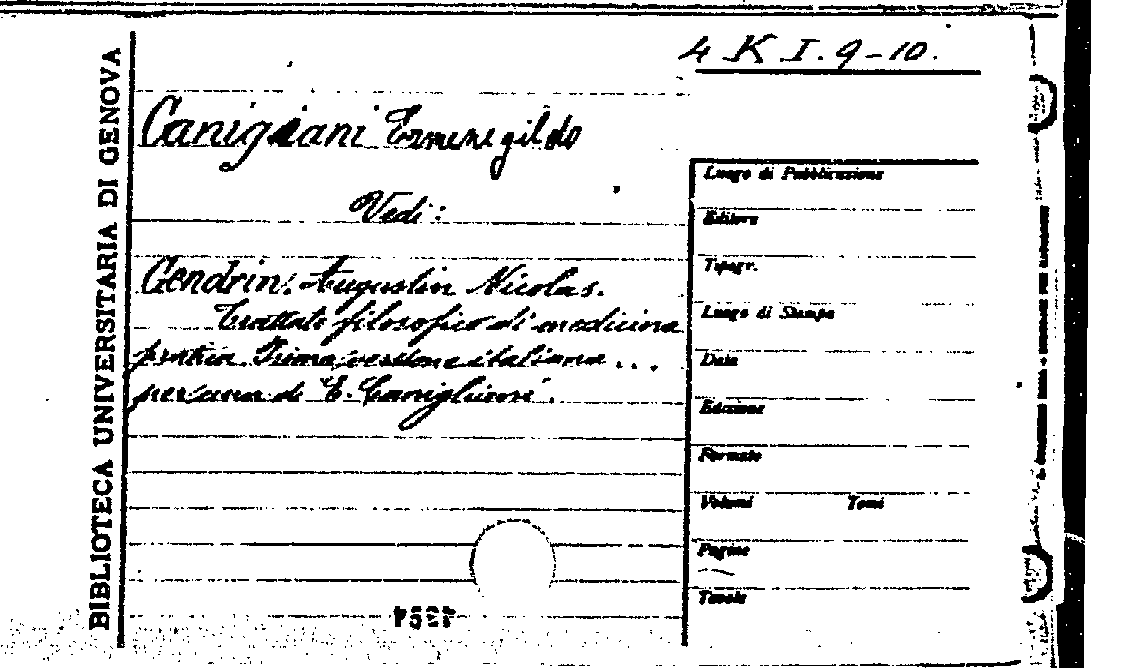 4 K I. 9-10.
BIBLIOTECA UNIVERSITARIA DI GENOVA
Canigiani Ermenegildo
Vedi:
Gendrin, Augustin Nicolas.
Trattato filosofico di medicina
pratica. Prima versione italiana ...
per cura di E. Canigliani.
Luogo di Pubblicazione
Editore
Tipogr.
Luogo di Stampa
Data
Edizione
Formato
Volumi Tomi
Pagine
Tavole